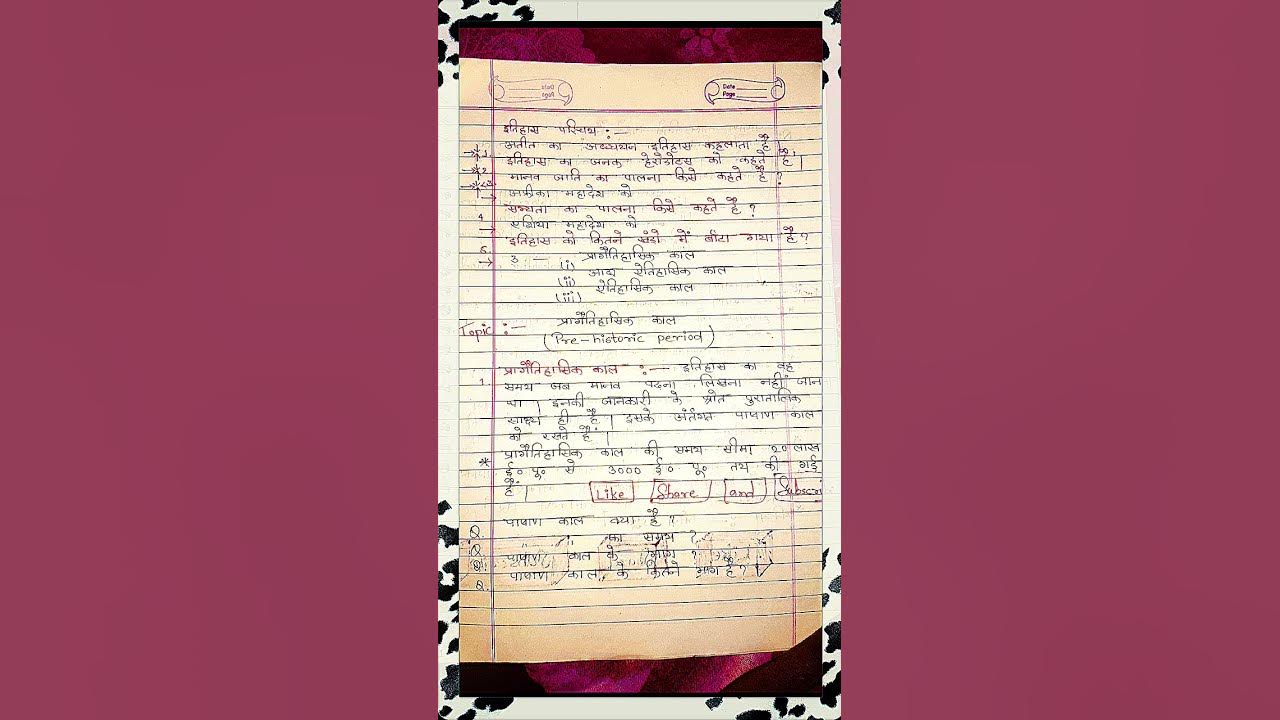 Date
Page
Date
Page
इतिहास परिचय :—
1 अतीत का अध्ययन इतिहास कहलाता है |
2 इतिहास का जनक हेरोडोटस को कहते है |
3 मानव जाति का पालना किसे कहते है ?
→ अफ्रीका महादेश को
4 सभ्यता का पालना किसे कहते है ?
→ एशिया महादेश को
5 इतिहास को कितने खंडो में बाँटा गया है ?
→ 3 — (i) प्रागैतिहासिक काल
(ii) आद्य ऐतिहासिक काल
(iii) ऐतिहासिक काल
Topic :— प्रागैतिहासिक काल
(Pre-historic period)
1. प्रागैतिहासिक काल :— इतिहास का वह
समय जब मानव पढना लिखना नहीं जान
था | इनकी जानकारी के स्रोत पुरातात्विक
साक्ष्य ही है | इसके अंर्तगत पाषाण काल
को रखते हैं |
* प्रागैतिहासिक काल की समय सीमा 20 लाख
ई० पू० से 3000 ई० पू० तय की गई
हैं |
Like Share and Subscri
Q. पाषाण काल क्या है ?
Q. " " का समय ?
Q. पाषाण काल के भाग ?
Q. पाषाण काल के कितने भाग है ?